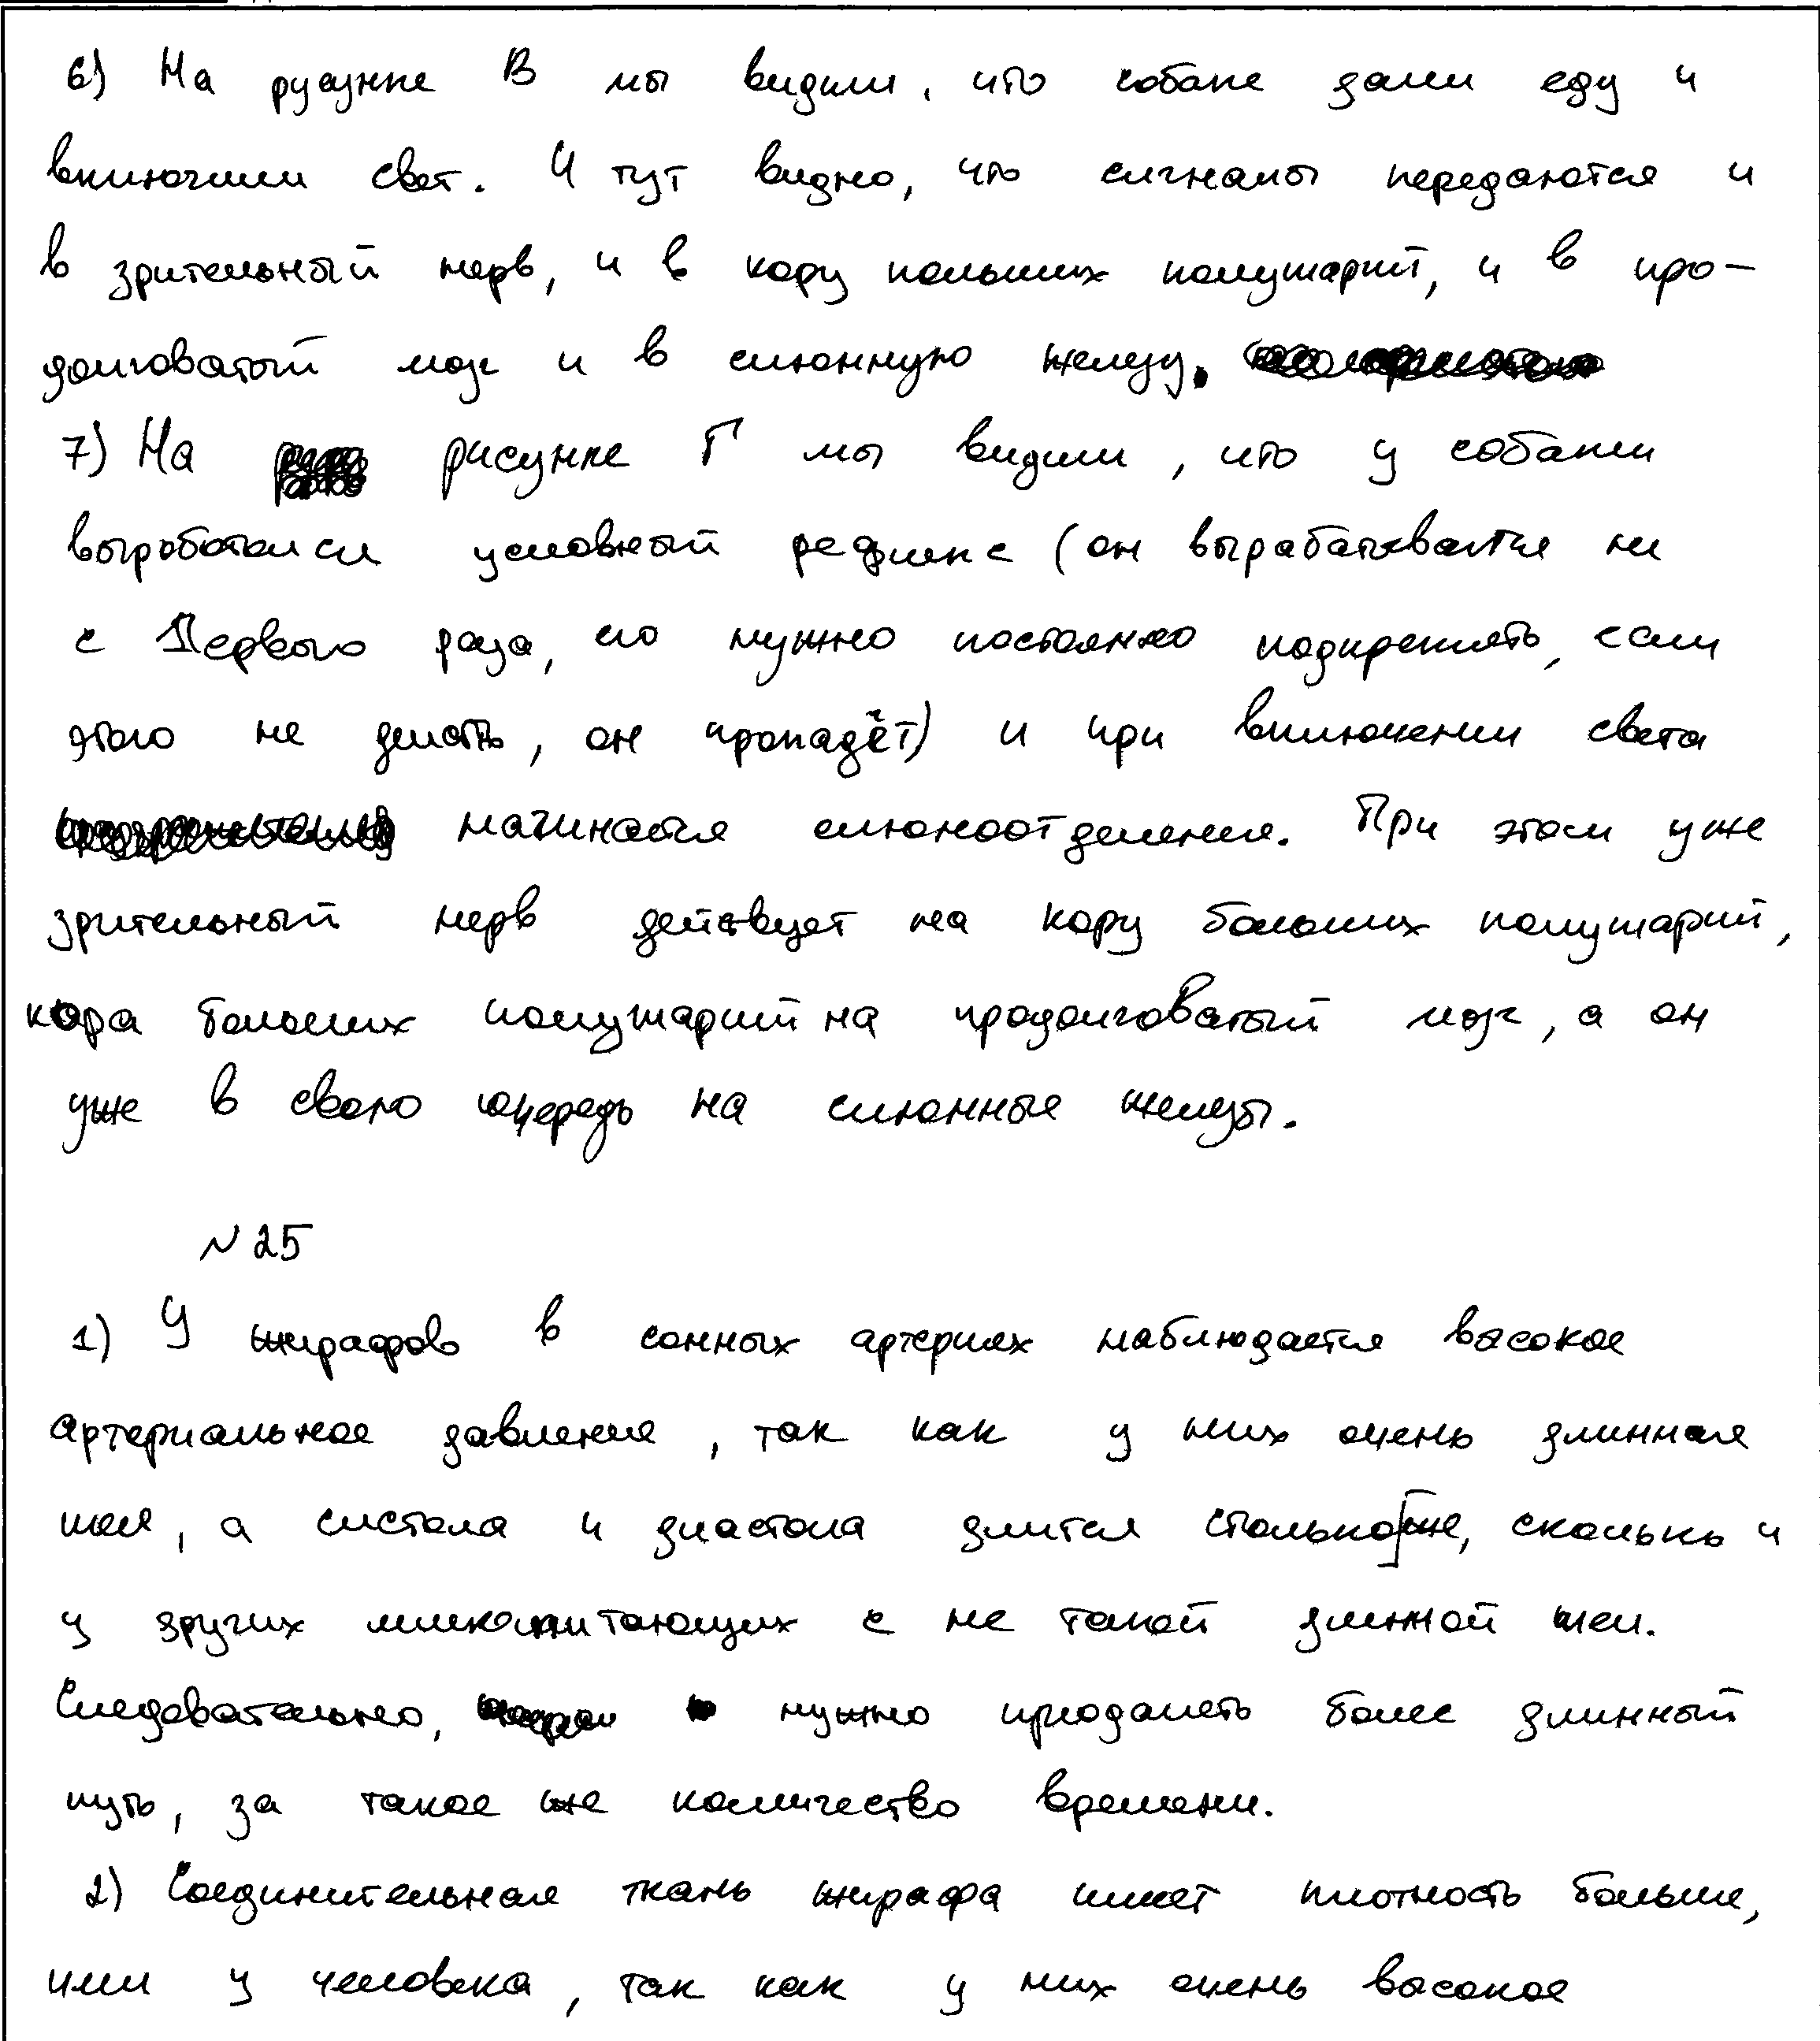 6) На рисунке В мы видим, что собаке дали еду и
включили свет. И тут видно, что сигналы передаются и
в зрительный нерв, и в кору польших полушарий, и в про-
долговатый мозг и в слюнную железу.
7) На рисунке Г мы видим, что у собаки
выработался условный рефлекс (он вырабатывается не
с первого раза, его нужно постоянно подкреплять, если
этого не делать, он пропадёт) и при включении света
начинается слюноотделение. При этом уже
зрительный нерв действует на кору больших полушарий,
кора больших полушарий на продолговатый мозг, а он
уже в свою очередь на слюнные железы.
№25
1) У жирафов в сонных артериях наблюдается высокое
артериальное давление, так как у них очень длинная
шея, а систола и диастола длится столько же, сколько и
у других млекопитающих с не такой длинной шеи.
Следовательно, нужно преодалеть более длинный
путь, за такое же количество времени.
2) Соединительная ткань жирафа имеет плотность больше,
чем у человека, так как у них очень высокое